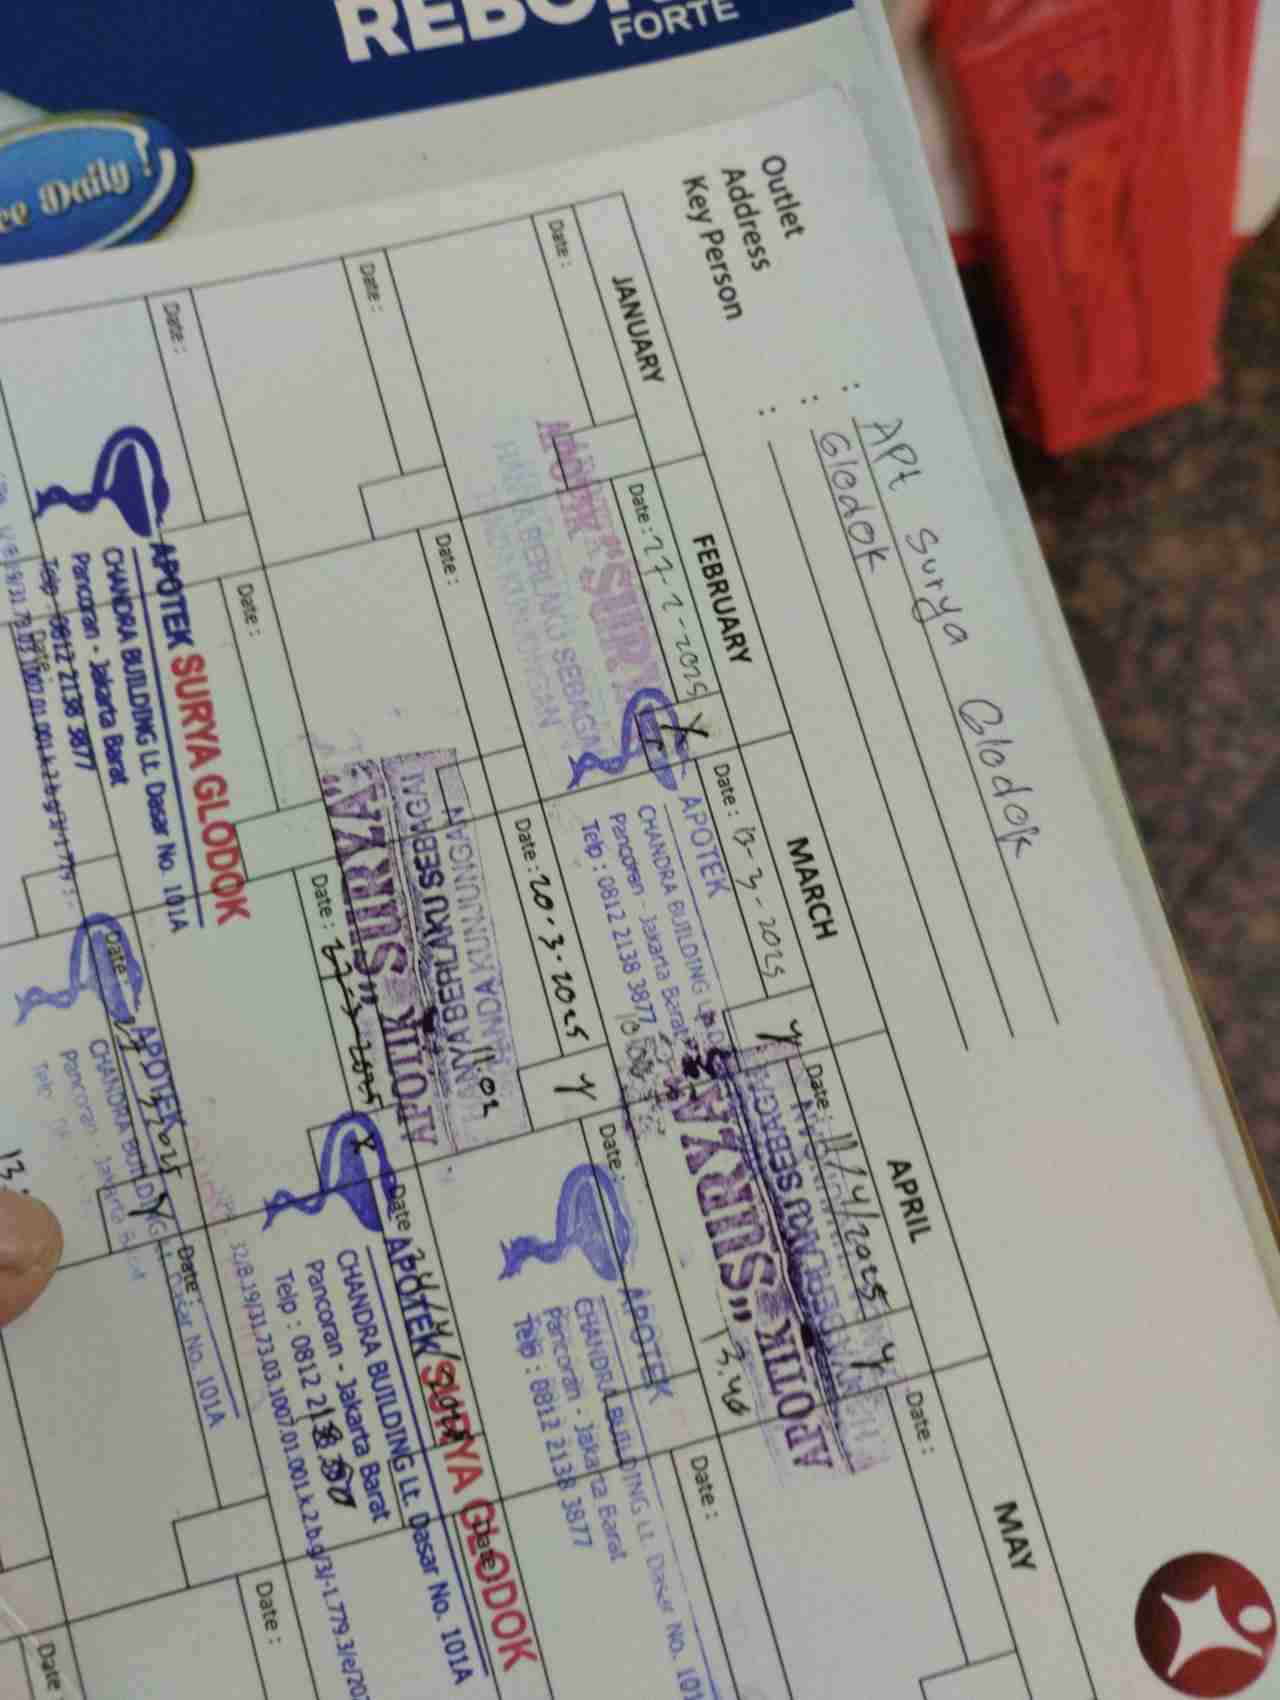 FORTE
Daily!
Outlet : APt Surya Glodok
Address : Glodok
Key Person :
JANUARY
FEBRUARY
MARCH
APRIL
MAY
Date :
Date : 27-2-2025 Y
Date : 13-3-2025 Y
Date : 11/4/2025 Y
Date :
APOTEK
CHANDRA BUILDING Lt.
Pancoran - Jakarta Barat
Telp : 0812 2138 3877
"SURYA"
APOTIK
13.40
Date :
Date :
Date : 20-3-2025 Y
Date :
Date :
HANYA BERLAKU SEBAGAI
TANDA KUNJUNGAN
APOTIK "SURYA"
11.02
APOTEK
CHANDRA BUILDING Lt. Dasar No. 101
Pancoran - Jakarta Barat
Telp : 0812 2138 3877
Date :
Date :
Date : 27-3-2025 Y
Date
Date
APOTEK SURYA GLODOK
CHANDRA BUILDING Lt. Dasar No. 101A
Pancoran - Jakarta Barat
Telp : 0812 2138 3877
APOTEK SURYA GLODOK
CHANDRA BUILDING Lt. Dasar No. 101A
Pancoran - Jakarta Barat
Telp : 0812
Date :
Date : Y
Date :
Date :
APOTEK
CHANDRA BUILDING Lt. Dasar No. 101A
Pancoran - Jakarta Barat
Telp
Date